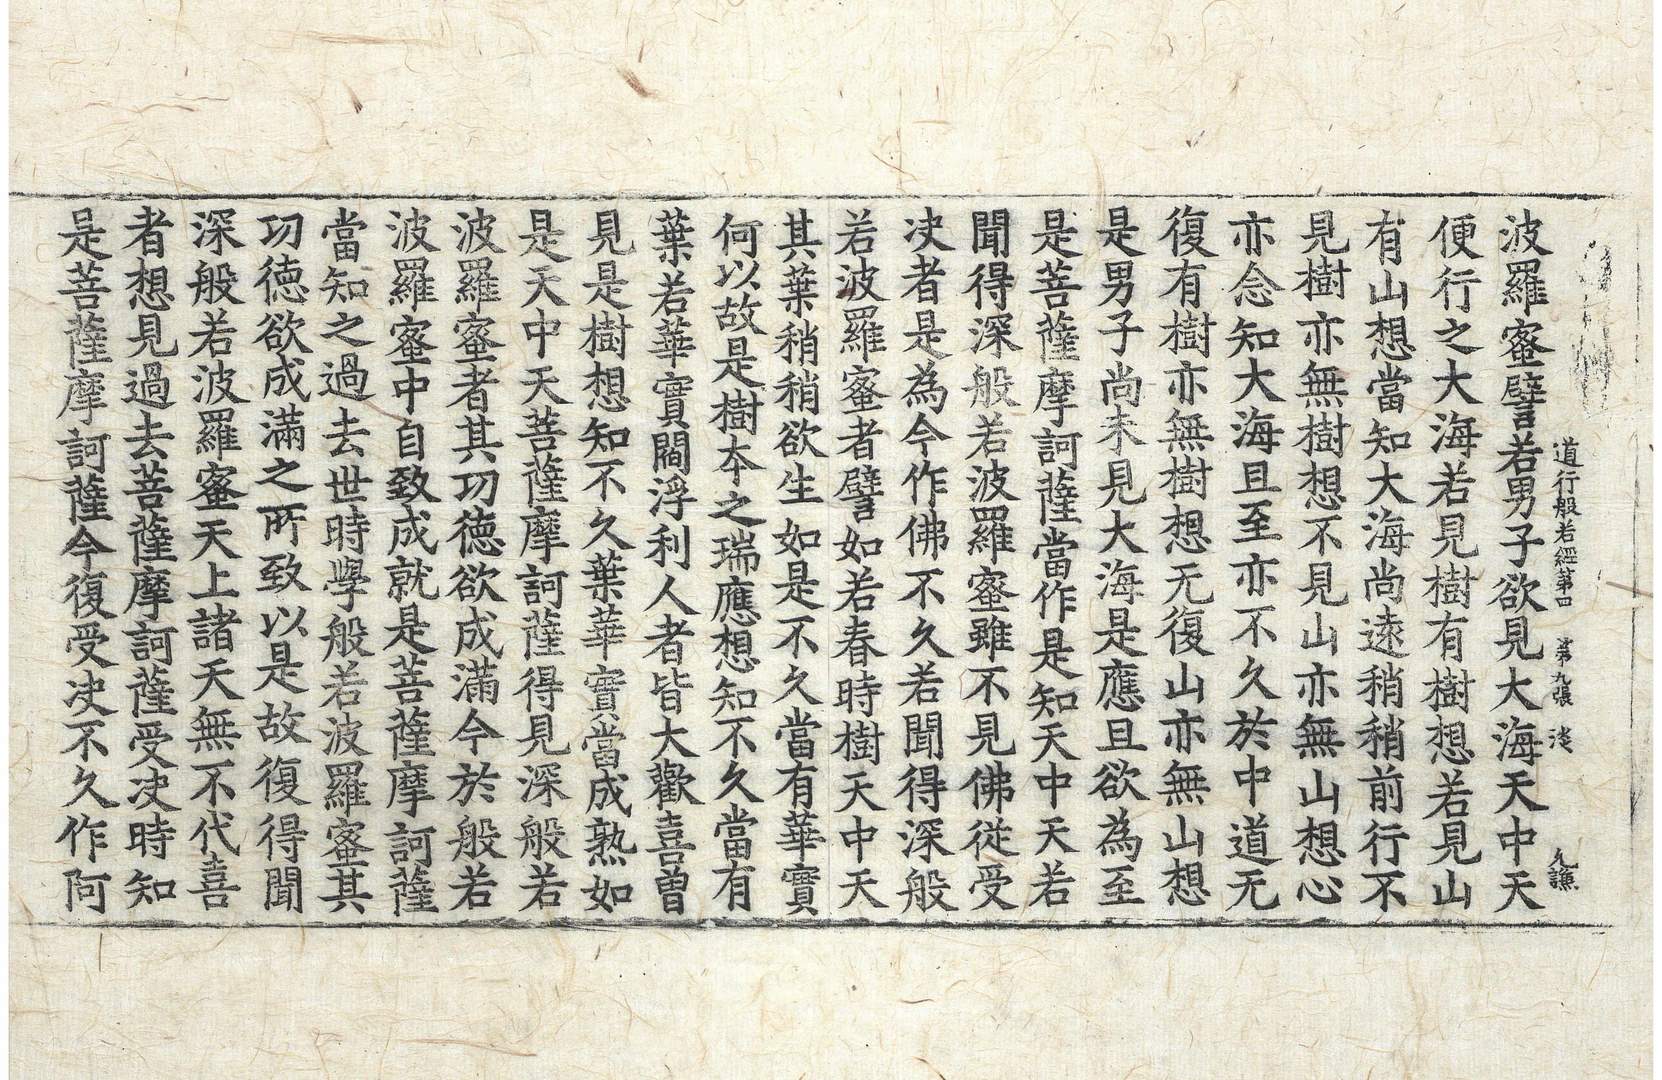 道行般若經第四 第九張 淡
波羅蜜譬若男子欲見大海天中天
便行之大海若見樹有樹想若見山
有山想當知大海尚遠稍稍前行不
見樹亦無樹想不見山亦無山想心
亦念知大海且至亦不久於中道无
復有樹亦無樹想无復山亦無山想
是男子尚未見大海是應且欲為至
是菩薩摩訶薩當作是知天中天若
聞得深般若波羅蜜雖不見佛從受
决者是為今作佛不久若聞得深般
若波羅蜜者譬如若春時樹天中天
其葉稍稍欲生如是不久當有華實
何以故是樹本之瑞應想知不久當有
葉若華實閻浮利人者皆大歡喜曾
見是樹想知不久葉華實當成熟如
是天中天菩薩摩訶薩得見深般若
波羅蜜者其功德欲成滿今於般若
波羅蜜中自致成就是菩薩摩訶薩
當知之過去世時學般若波羅蜜其
功德欲成滿之所致以是故復得聞
深般若波羅蜜天上諸天無不代喜
者想見過去菩薩摩訶薩受决時知
是菩薩摩訶薩今復受决不久作阿